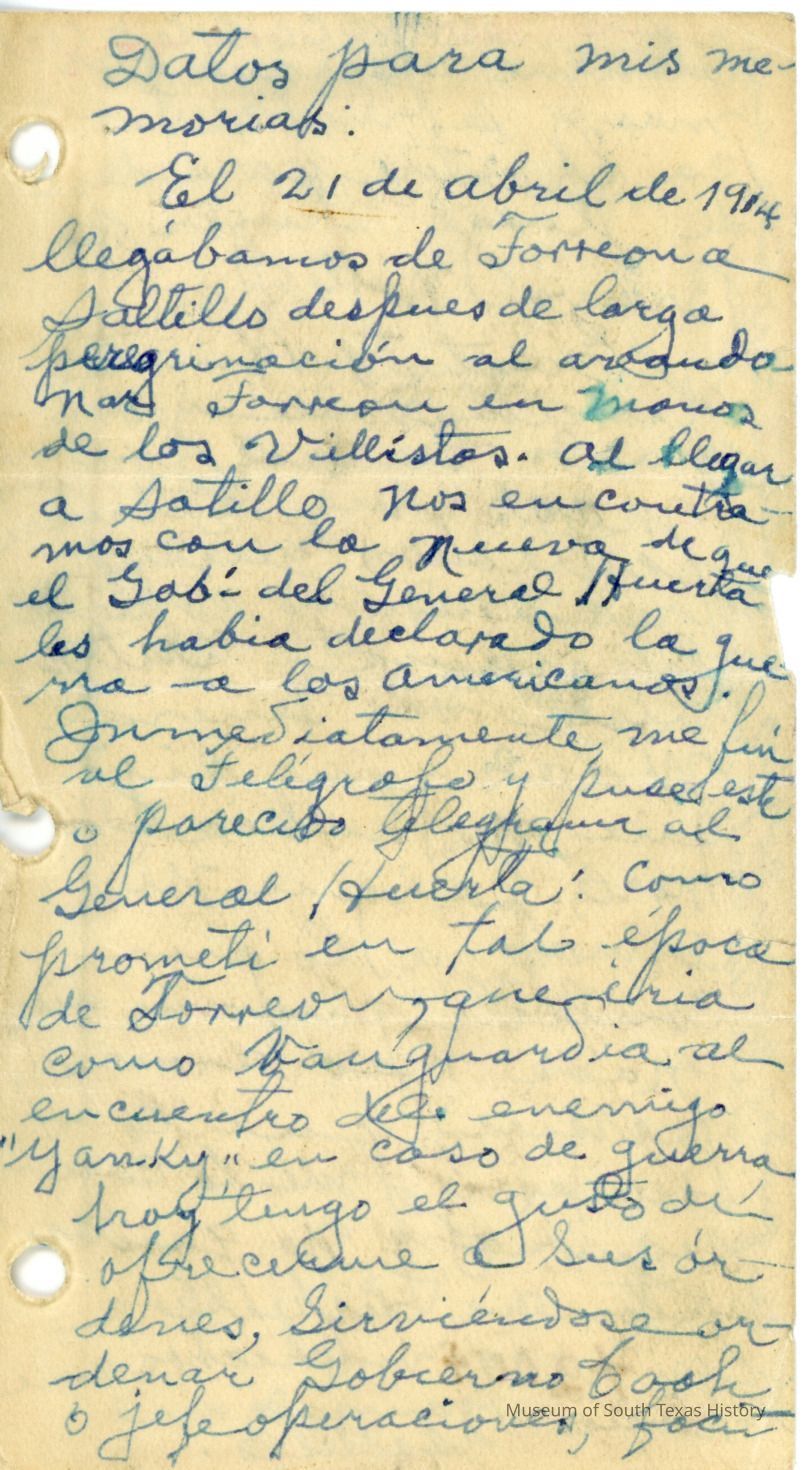 Datos para mis me-
morias:
El 21 de abril de 1914
llegábamos de Torreon a
Saltillo despues de larga
peregrinación al avando
nar Torreon en manos
de los Villistas. Al llegar
a Satillo nos encontra-
mos con la nueva de que
el Gob- del General Huerta
les habia declarado la gue-
rra a los Americanos.
Inmediatamente me fuí
al Telégrafo y puse este
o parecido telegrama al
General Huerta: Como
prometí en tal época
de Torreon, que iria
como Vanguardia al
encuentro del enemigo
"Yanky" en caso de guerra
hoy tengo el gusto de
ofrecerme a sus ór-
denes, Sirviéndose or-
denar Gobierno Coah
ó jefe operaciones,
Museum of South Texas History